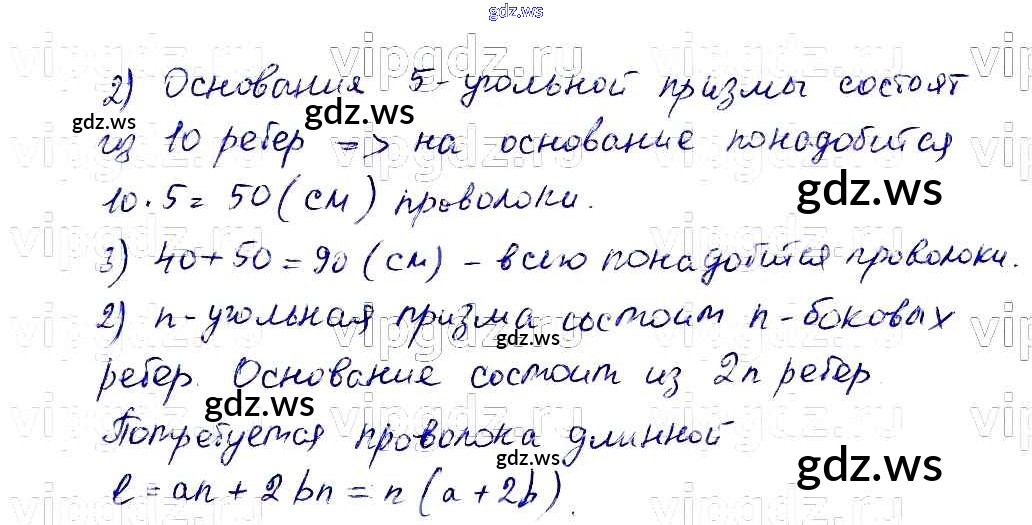 gdz.ws
2) Основания 5-угольной призмы состоят
из 10 ребер => на основание понадобится
10·5=50(см) проволоки.
3) 40+50=90(см) - всего понадобится проволоки.
2) n-угольная призма состоит n-боковых
ребер. Основание состоит из 2n ребер
Потребуется проволока длинной
l=an+2bn=n(a+2b).
vipgdz.ru
gdz.ws